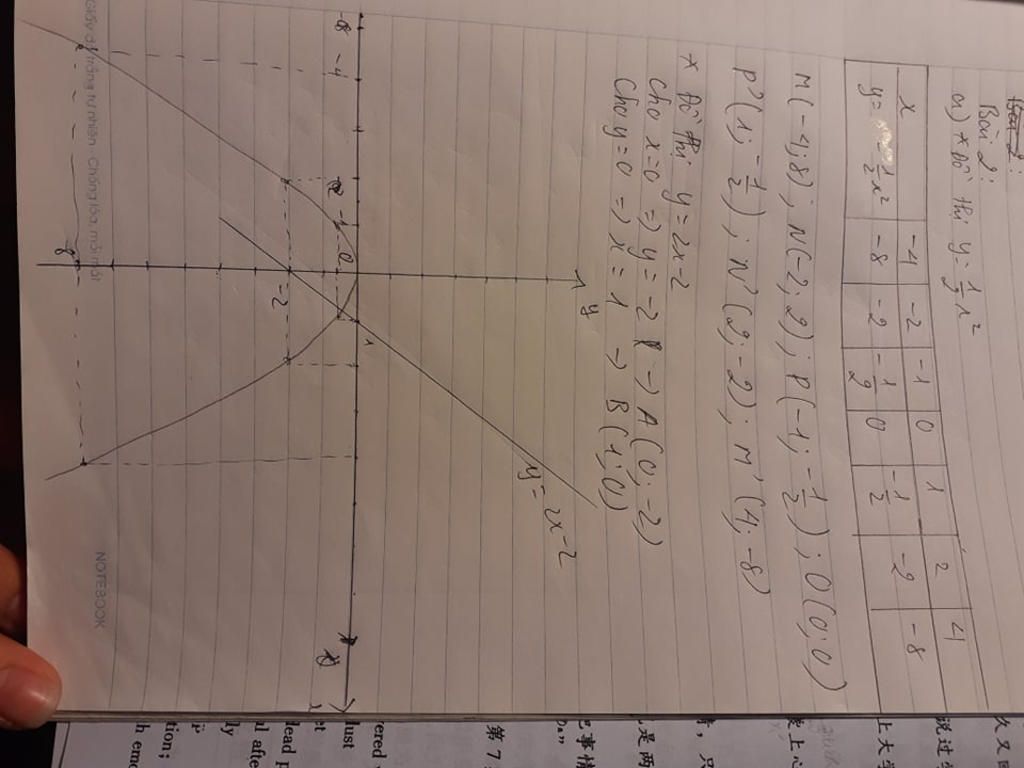 Bài 2:
a) * Đồ thị y = 1/2 x²
x -4 -2 -1 0 1 2 4
y = -1/2 x² -8 -2 -1/2 0 -1/2 -2 -8
M(-4; 8); N(-2; 2); P(-1; -1/2); O(0; 0)
P'(1; -1/2); N'(2; -2); M'(4; -8)
* Đồ thị y = 2x-2
Cho x=0 => y = -2 -> A(0; -2)
Cho y=0 => x = 1 -> B(1; 0)
y
y = 2x-2
-8 -4 -2 -1 0 1
-2
-8
NOTEBOOK
Giấy có độ trắng tự nhiên - Chống lóa, mỏi mắt
第7